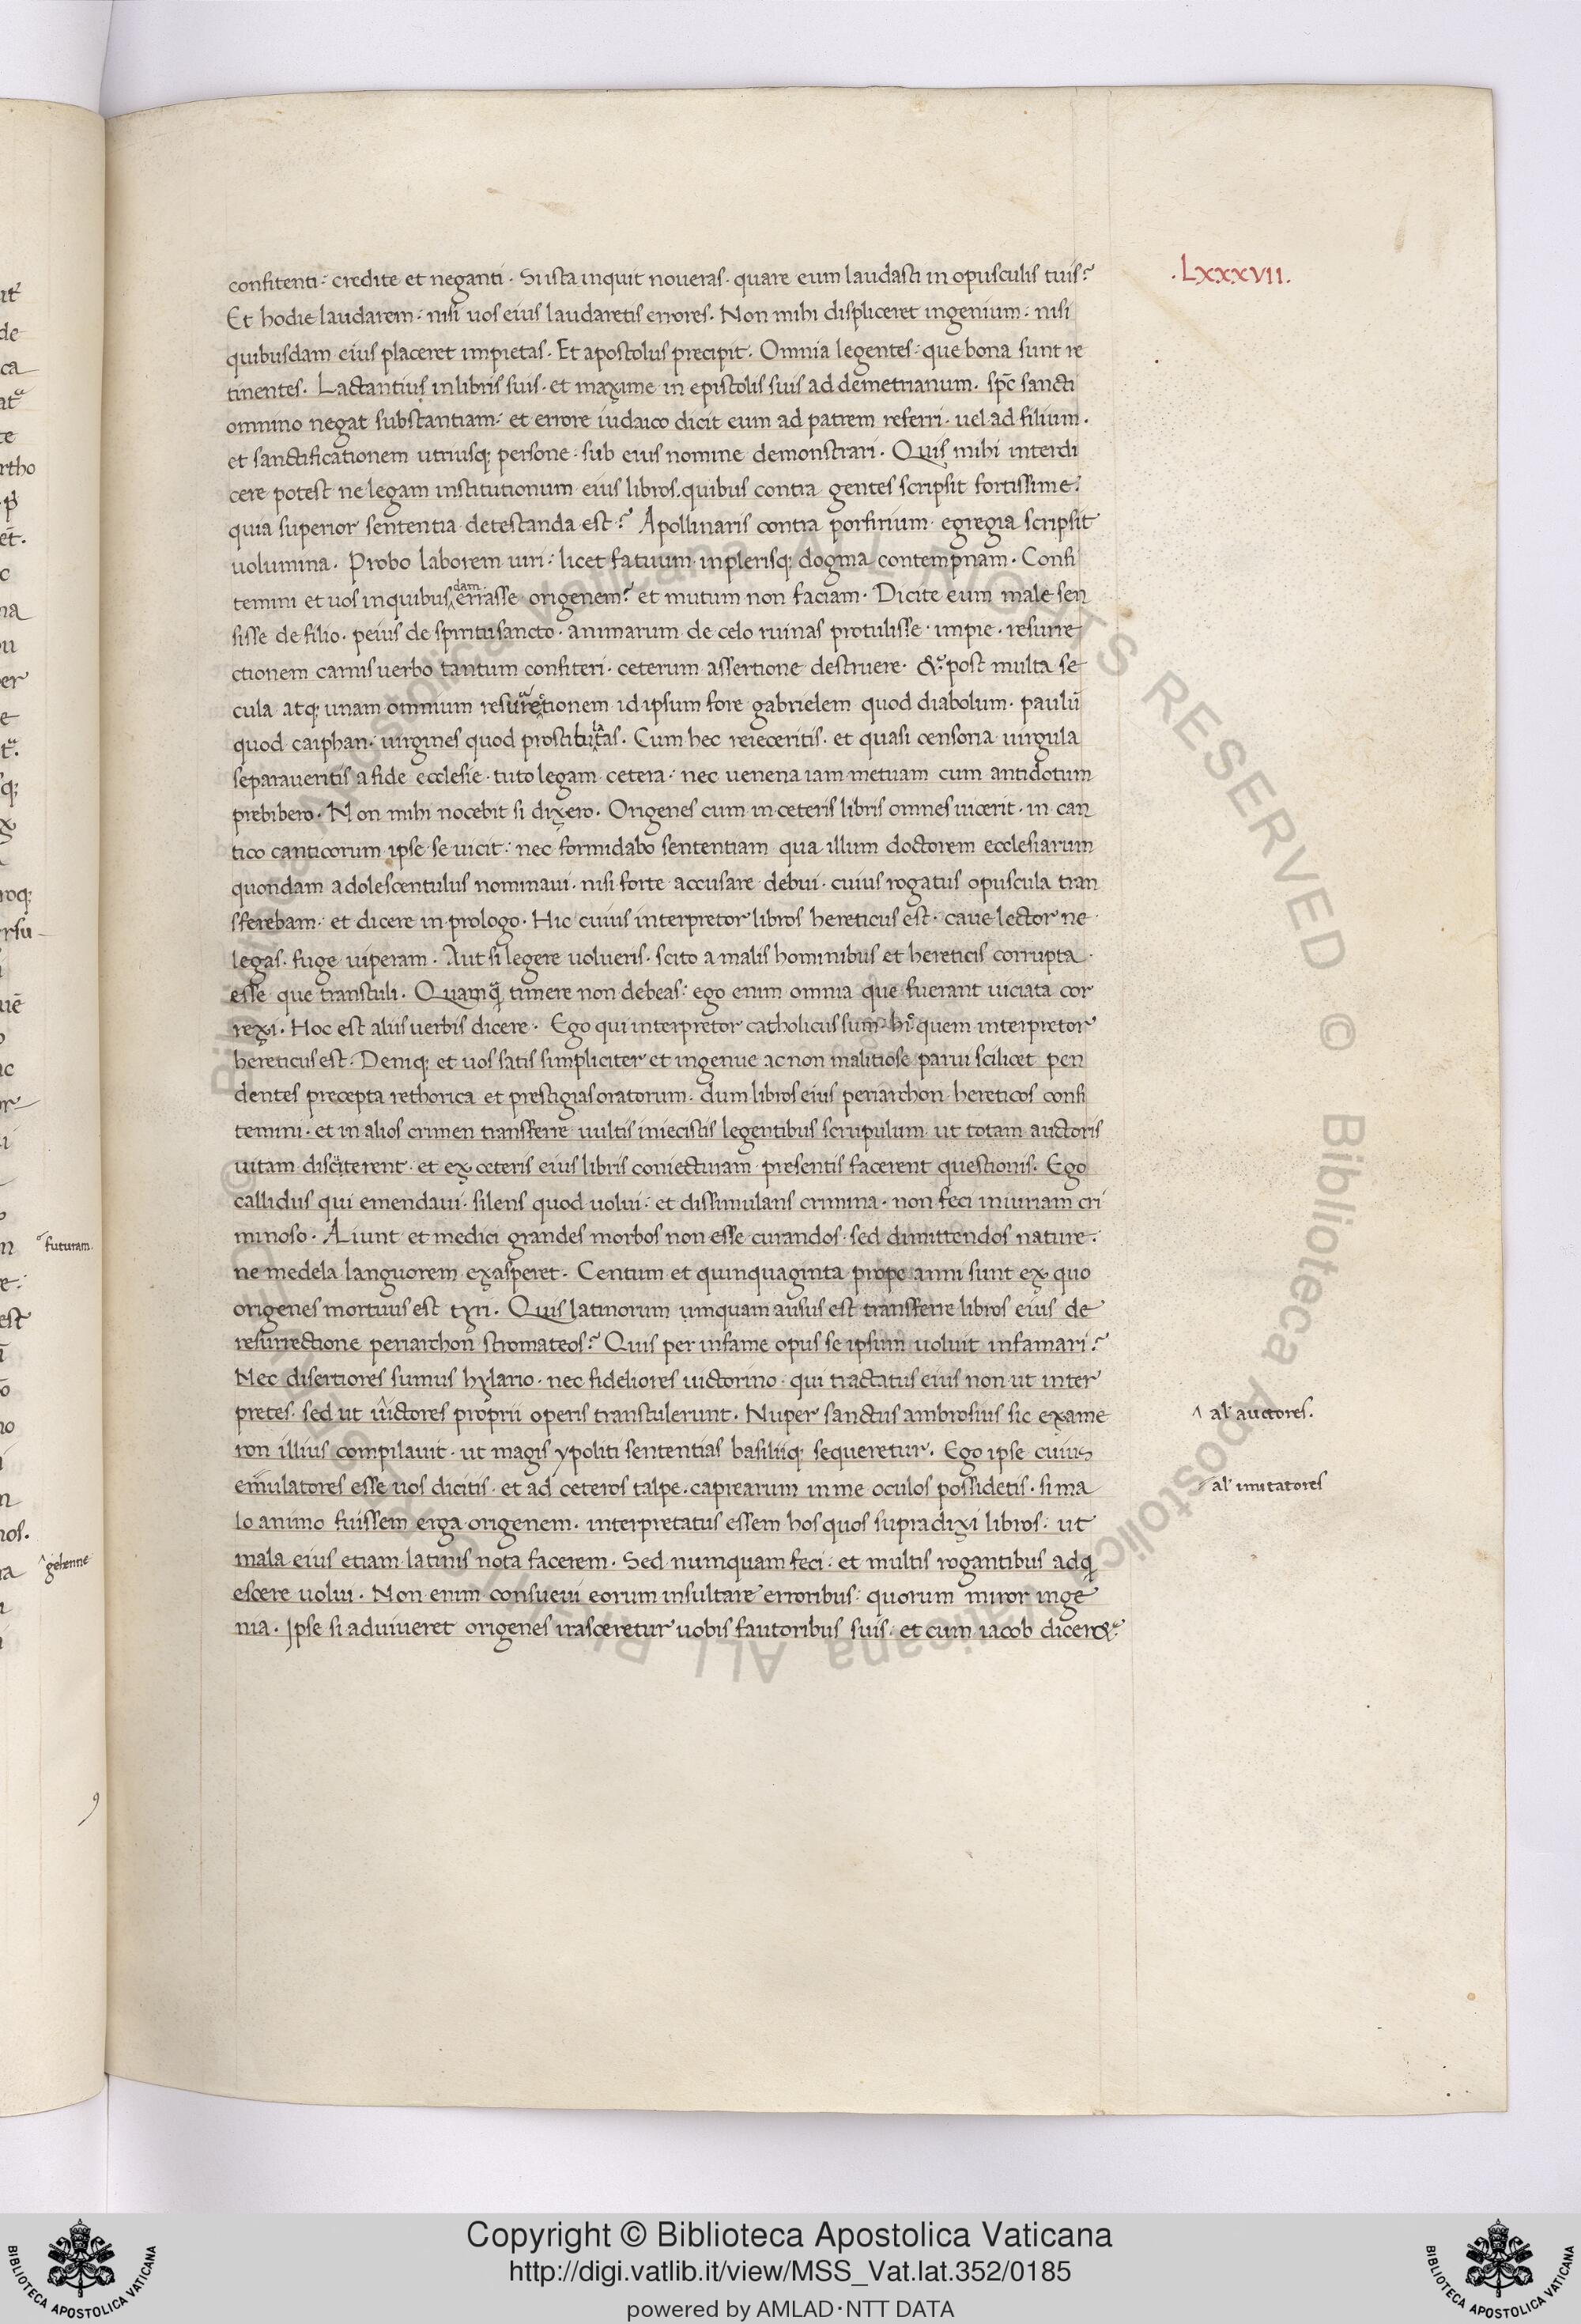 .Lxxxvii.
confitenti: credite et neganti. Si ista inquit noveras. quare eum laudasti in opusculis tuis?
Et hodie laudarem: nisi uos eius laudaretis errores. Non mihi displiceret ingenium: nisi
quibusdam eius placeret impietas. Et apostolus precipit. Omnia legentes: que bona sunt re
tinentes. Lactantius in libris suis. et maxime in epistolis suis ad demetrianum. sp̄c sancti
omnino negat substantiam: et errore iudaico dicit eum ad patrem referri. uel ad filium.
et sanctificationem utriusq; persone. sub eius nomine demonstrari. Quis mihi interdi
cere potest ne legam institutionum eius libros. quibus contra gentes scripsit fortissime:
quia superior sententia detestanda est? Apollinaris contra porfirium egregia scripsit
uolumina. Probo laborem uiri: licet fatuum in plerisq; dogma contempnam. Confi
temini et uos in quibusdam errasse origenem? et mutum non faciam. Dicite eum male sen
sisse de filio. peius de spiritu sancto. animarum de celo ruinas protulisse. impie. resurre
ctionem carnis verbo tantum confiteri. ceterum assertione destruere. & post multa se
cula atq; unam omnium resurrectionem id ipsum fore gabrielem quod diabolum. paulū
quod caiphan. uirgines quod prostibulas. Cum hec reieceritis. et quasi censoria uirgula
separaveritis a fide ecclesie. tuto legam cetera: nec uenena iam metuam cum antidotum
prebibero. Non mihi nocebit si dixero. Origenes cum in ceteris libris omnes uicerit. in can
tico canticorum ipse se uicit: nec formidabo sententiam qua illum doctorem ecclesiarum
quondam adolescentulus nominaui. nisi forte accusare debui. cuius rogatus opuscula tran
sferebam. et dicere in prologo. Hic cuius interpretor libros hereticus est. cave lector ne
legas. fuge uiperam. Aut si legere uolueris. scito a malis hominibus et hereticis corrupta
esse que transtuli. Quamq̄ timere non debeas: ego enim omnia que fuerant uiciata cor
rexi. Hoc est aliis verbis dicere. Ego qui interpretor catholicus sum. hic quem interpretor
hereticus est. Deniq; et uos satis simpliciter et ingenue ac non malitiose parvi scilicet pen
dentes precepta rethorica et prestigias oratorum. dum libros eius periarchon hereticos confi
temini. et in alios crimen transferre uultis iniecistis legentibus scrupulum. ut totam auctoris
uitam discuterent. et ex ceteris eius libris coniecturam presentis facerent questionis. Ego
callidus qui emendavi. silens quod uolui: et dissimulans crimina. non feci iniuriam cri
minoso. Aiunt et medici grandes morbos non esse curandos. sed dimittendos nature:
ne medela languorem exasperet. Centum et quinquaginta prope anni sunt ex quo
origenes mortuus est tyri. Quis latinorum umquam ausus est transferre libros eius de
resurrectione periarchon stromateos? Quis per infame opus se ipsum uoluit infamari?
Nec disertiores sumus hylario. nec fideliores uictorino. qui tractatus eius non ut inter
pretes. sed ut uictores proprii operis transtulerunt. Nuper sanctus ambrosius sic exame
al' auctores.
ron illius compilavit. ut magis ypoliti sententias basiliiq; sequeretur. Ego ipse cuius
emulatores esse uos dicitis. et ad ceteros talpe. caprearum in me oculos possidetis. si ma
al' imitatores
lo animo fuissem erga origenem. interpretatus essem hos quos supra dixi libros: ut
mala eius etiam latinis nota facerem. Sed numquam feci: et multis rogantibus adq
escere uolui. Non enim consuevi eorum insultare erroribus: quorum miror inge
nia. Ipse si adviueret origenes irasceretur uobis fautoribus suis: et cum iacob dicer&
futuram
gehenne
Copyright © Biblioteca Apostolica Vaticana
http://digi.vatlib.it/view/MSS_Vat.lat.352/0185
powered by AMLAD·NTT DATA